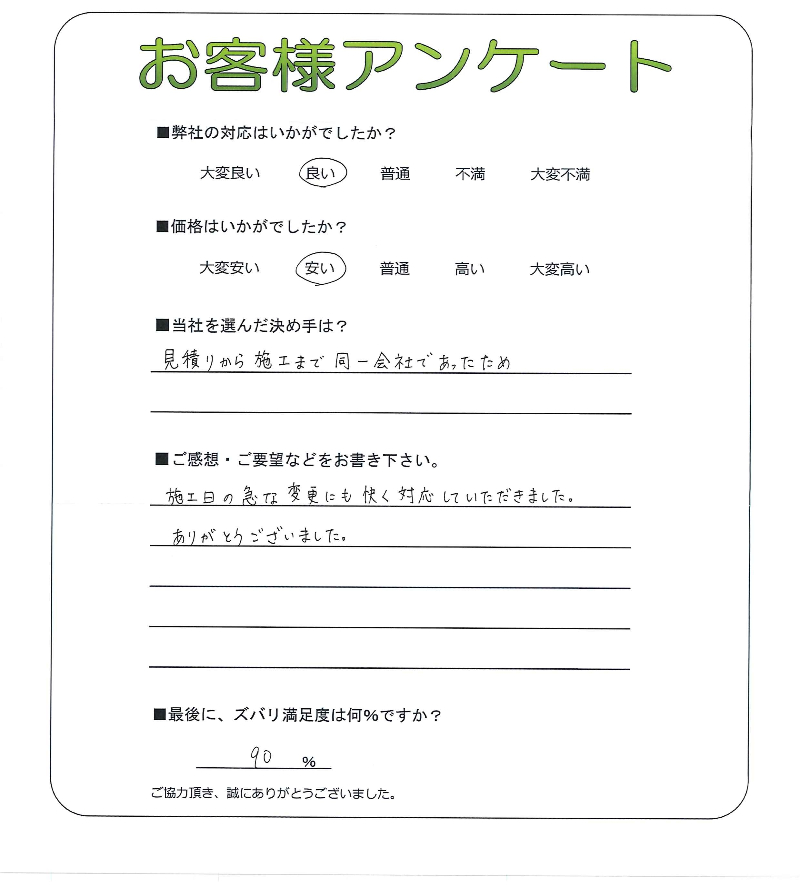 お客様アンケート
■弊社の対応はいかがでしたか？
大変良い 良い 普通 不満 大変不満
■価格はいかがでしたか？
大変安い 安い 普通 高い 大変高い
■当社を選んだ決め手は？
見積りから施工まで同一会社であったため
■ご感想・ご要望などをお書き下さい。
施工日の急な変更にも快く対応していただきました。
ありがとうございました。
■最後に、ズバリ満足度は何%ですか？
90 %
ご協力頂き、誠にありがとうございました。